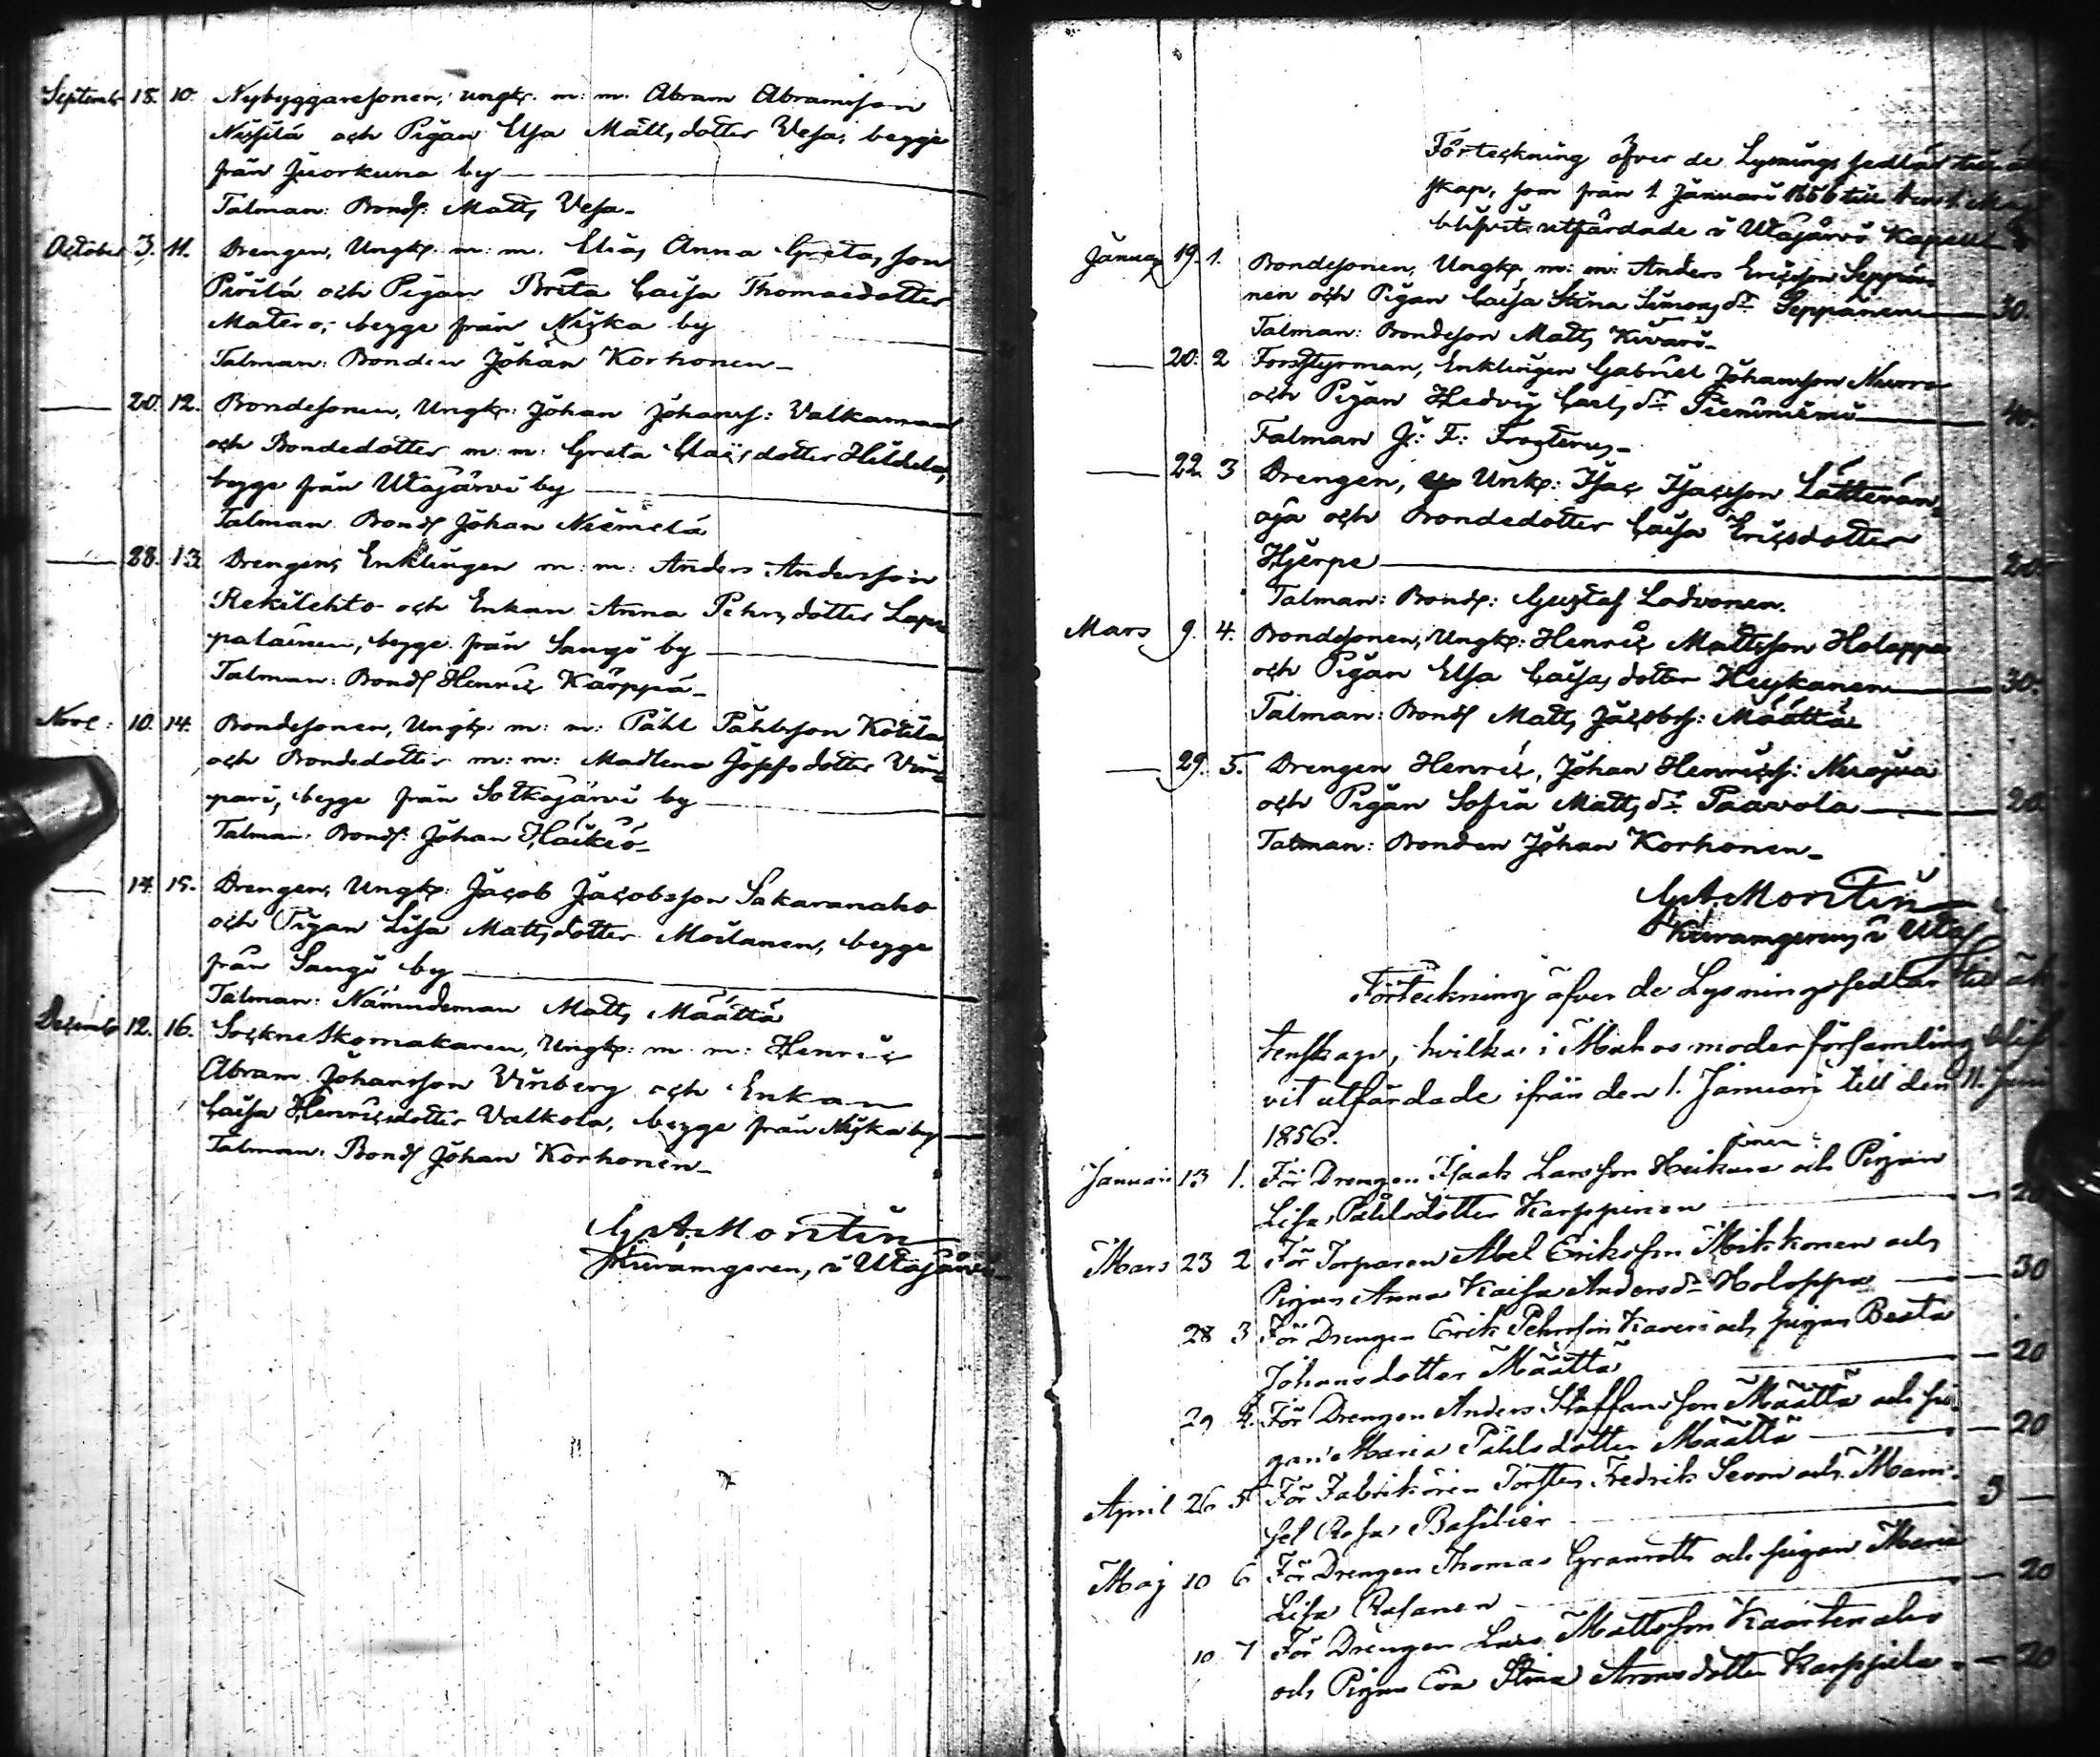 September 18. 10. Nybyggaresonen, ungk. m: m. Abram Abramsson
Nissilä och Pigan Elsa Mattsdotter Vesa, begge
från Juorkuna by
Talman: Bond: Matts Vesa
October 3. 11. Drengen, Ungk. m: m. Elias Anna Gretas son
Piirilä och Pigan Brita Caisa Thomasdotter
Matero, begge från Niska by
Talman: Bonden Johan Korhonen
20. 12. Bondesonen, Ungk: Johan Johanss: Valkamaa
och Bondedotter m: m: Greta Claësdotter
begge från Utajärvi by
Talman Bond Johan Niemelä
28. 13 Drengen, Enklingen m: m: Anders Andersson
Rekilehto och Enkan Anna Pehrsdotter Lap
palainen, begge från Sangi by
Talman: Bond Henric Kärppä
Nov: 10. 14. Bondesonen, Ungk. m: m: Påhl Påhlsson Kotila
och Bondedotter m: m: Madlena Josefsdotter
pari, begge från Sotkajärvi by
Talman: Bond: Johan Häikiö
14. 15. Drengen, Ungk: Jacob Jacobsson Sakaranaho
och Pigan Lisa Mattsdotter Moilanen, begge
från Sangi by
Talman: Nämndeman Matts Määttä
Decemb 12. 16. Sockneskomakaren, Ungk: m. m: Henric
Abram Johansson Vinberg och Enkan
Caisa Henricsdotter Valkola, begge från Niska by
Talman: Bond Johan Korhonen
G. A. Montin
i Utajärvi
Förteckning öfver de Lysningssedlar till
skap, som från 1 Januarii 1856 till
blifvit utfärdade i Utajärvi Kapell
Januar 19. 1. Bondesonen, Ungk. m: m: Anders Ericsson Seppä
nen och Pigan Caisa Stina Simons dr Seppänen 30.
Talman: Bondeson Matts Kivari
20. 2 Forsstyrman, Enklingen Gabriel Johansson
och Pigan Hedvig Carls dr Pieniniemi 40.
Talman J: F: Frosterus
22. 3 Drengen, Unk: Isac Isacsson
oja och Bondedotter Caisa Ericsdotter
Hjerpe 20
Talman: Bond: Gustaf Lodvonen.
Mars 9. 4. Bondesonen, Ungk: Henric Mattsson Holappa
och Pigan Elsa Caisas dotter Heikanen 30.
Talman: Bond Matts Jacobss: Määttä
29. 5. Drengen Henric, Johan Henricss: Merojva
och Pigan Sofia Matts dr Paavola 20
Talman: Bonden Johan Korhonen
G. A. Montin
i Utaj
Förteckning öfver de Lysningssedlar till äk
tenskap, hvilka i Muhos moderförsamling blif
vit utfärdade ifrån den 1. Januari till den 11. Juni
1856.
Januari 13 1. För Drengen Isaak Larsson och Pigan
Lisa Påhlsdotter Karppinen 20
Mars 23 2 För Torparen Abel Eriksson Mikkonen och
Pigan Anna Kaisa Anders dr Holappa 30
28 3 För Drengen Erik Pehrsson Kaveri och pigan Beata
Johansdotter Määttä 20
29 4. För Drengen Anders Staffansson Määttä och pi
gan Maria Påhlsdotter Määttä 20
April 26 5 För Fabrikören Torsten Fredrik Seson och Mam
sel Rosa Basilier 3
Maj 10 6 För Drengen Thomas Granroth och pigan Maria
Lisa Rasanen 20
10 7 För Drengen Lars Mattsson Kaartenaho
och Pigan Eva Stina Aronsdotter Karppila 20